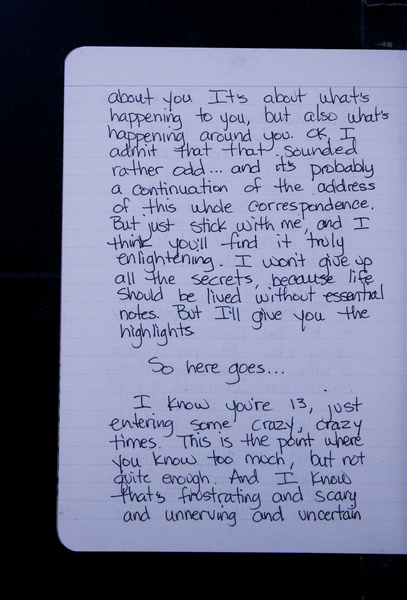 about you It's about what's
happening to you, but also what's
happening around you. OK, I
admit that that sounded
rather odd... and it's probably
a continuation of the address
of this whole correspondence.
But just stick with me, and I
think you'll find it truly
enlightening. I won't give up
all the secrets, because life
should be lived without essential
notes. But I'll give you the
highlights
So here goes...
I know you're 13, just
entering some crazy, crazy
times. This is the point where
you know too much, but not
quite enough. And I know
that's frustrating and scary
and unnerving and uncertain